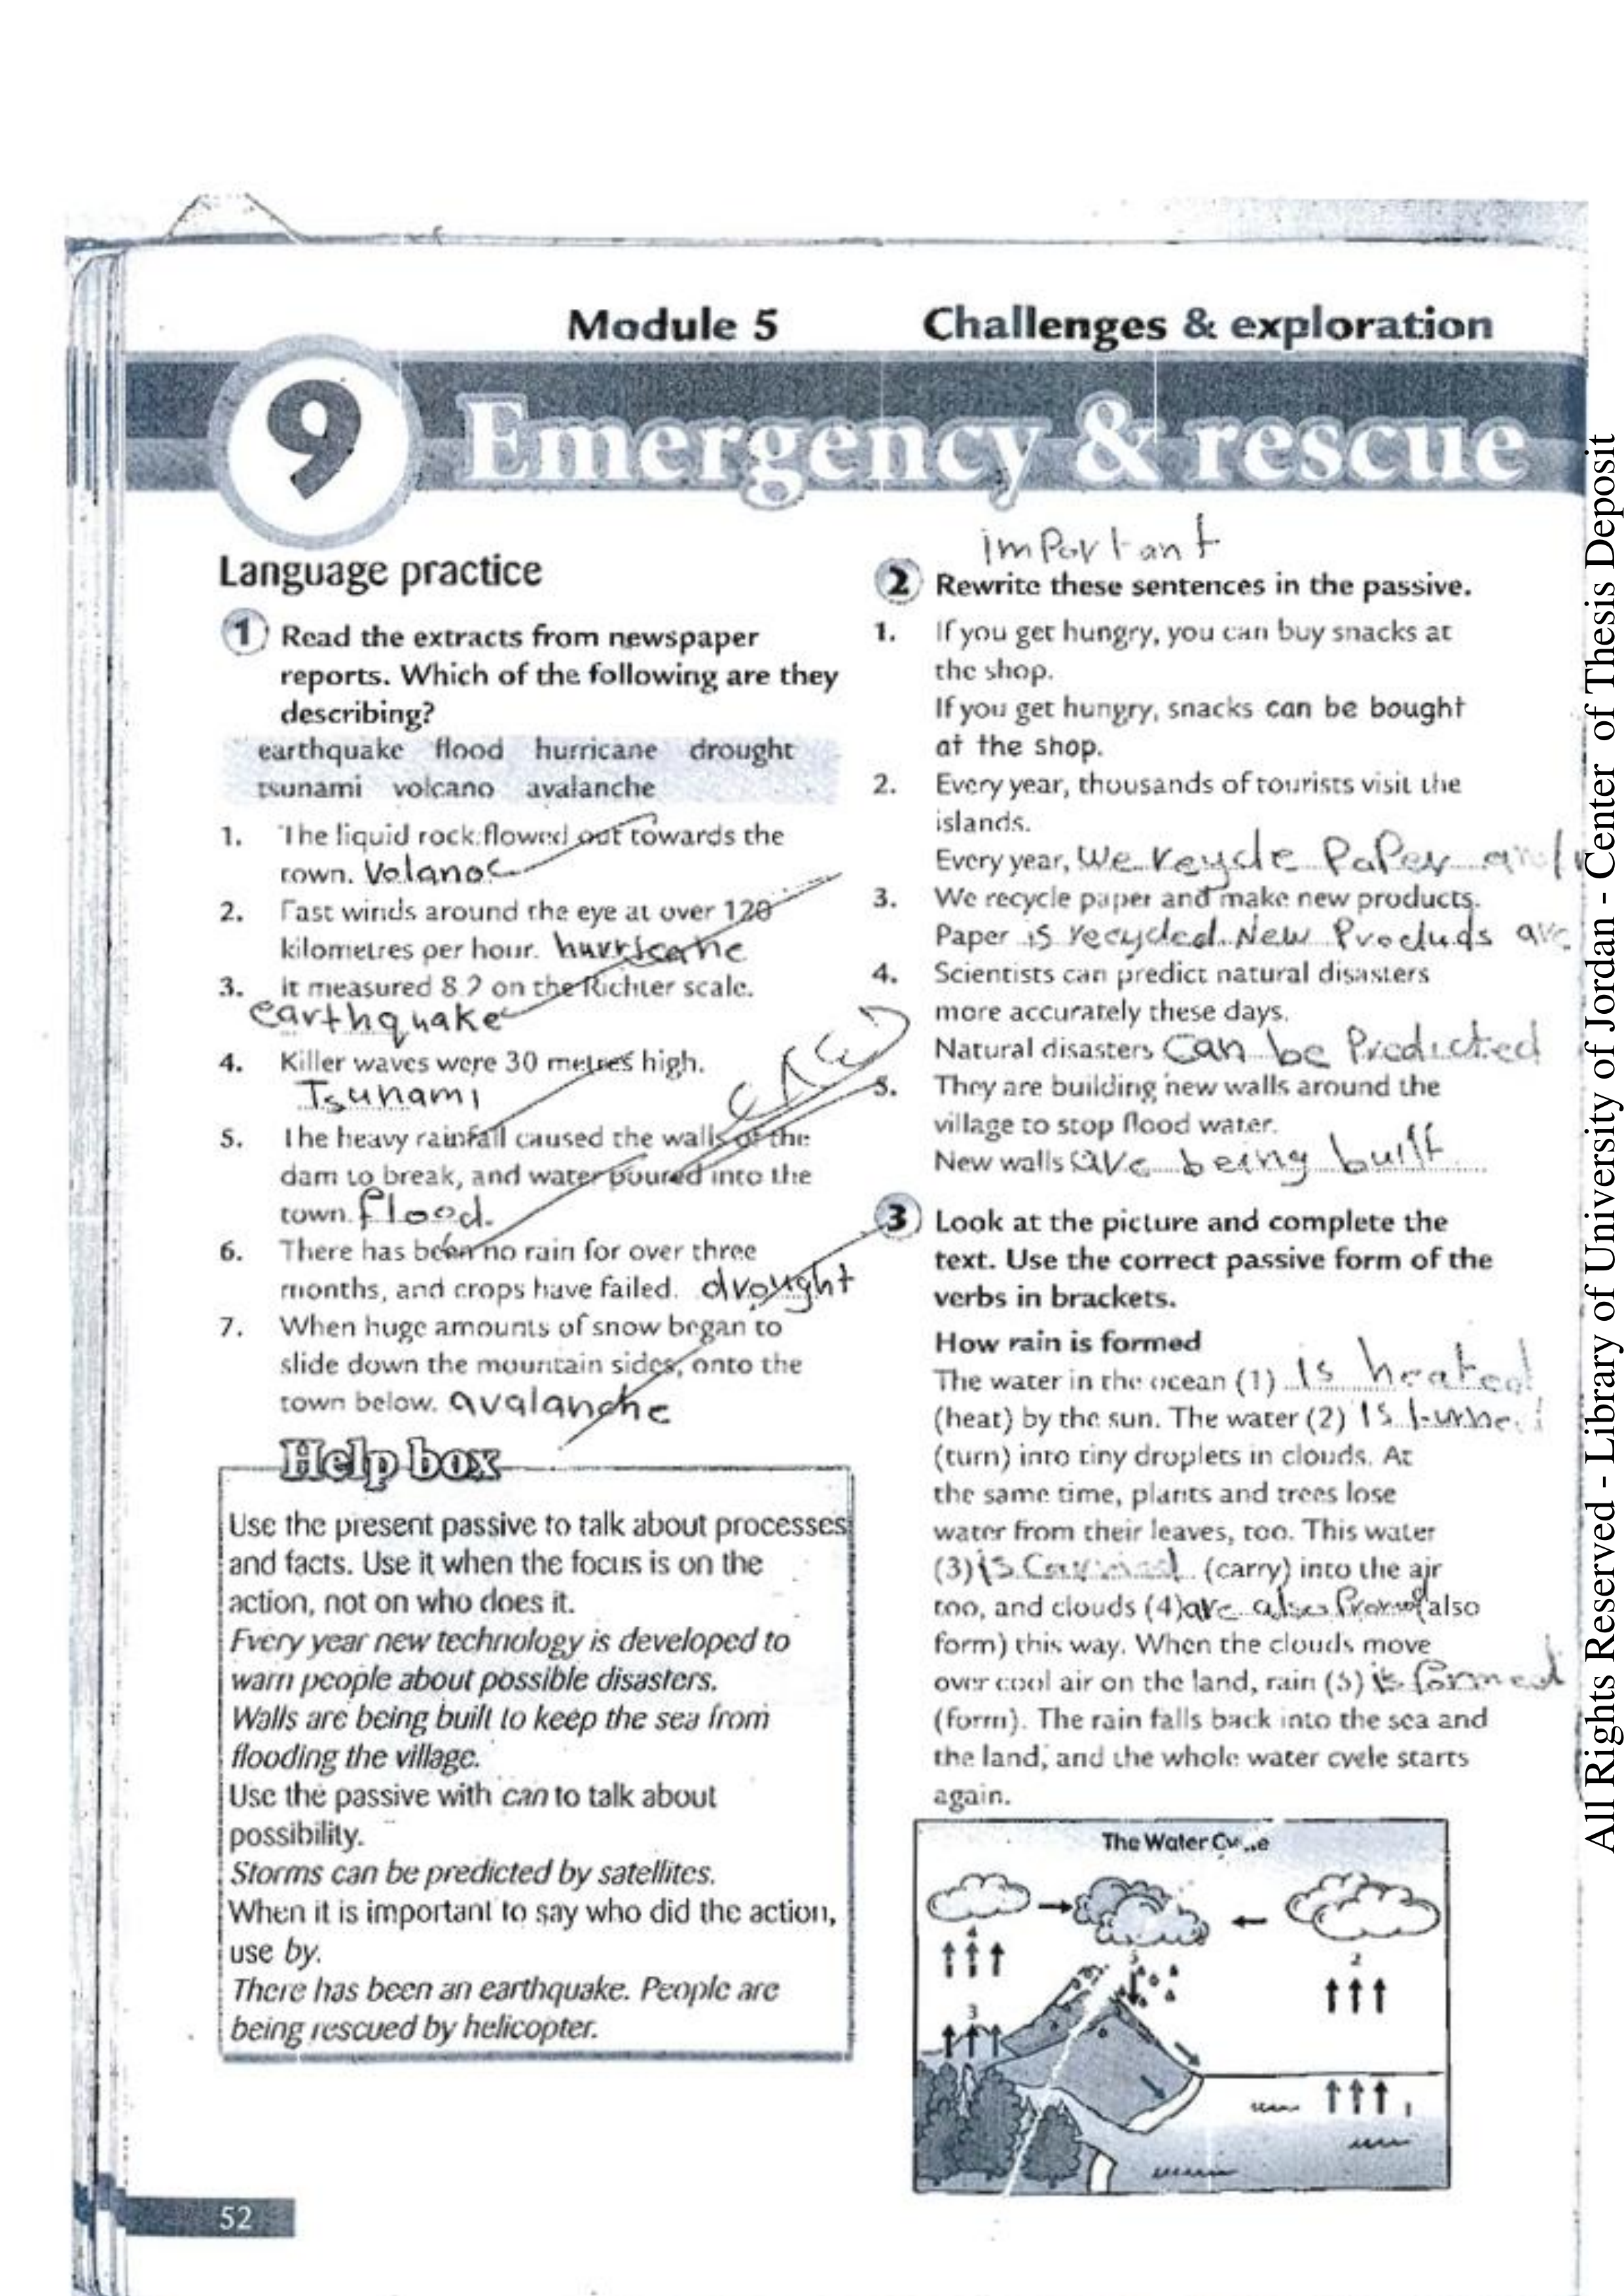 Module 5 Challenges & exploration
9 Emergency & rescue
Language practice
1 Read the extracts from newspaper
reports. Which of the following are they
describing?
earthquake flood hurricane drought
tsunami volcano avalanche
1. The liquid rock flowed out towards the
town. Volanoc
2. Fast winds around the eye at over 120
kilometres per hour. hurricane
3. It measured 8.2 on the Richter scale.
earthquake
4. Killer waves were 30 metres high.
Tsunami
5. The heavy rainfall caused the walls of the
dam to break, and water poured into the
town. flood.
6. There has been no rain for over three
months, and crops have failed. drought
7. When huge amounts of snow began to
slide down the mountain sides, onto the
town below. avalanche
Help box
Use the present passive to talk about processes
and facts. Use it when the focus is on the
action, not on who does it.
Every year new technology is developed to
warn people about possible disasters.
Walls are being built to keep the sea from
flooding the village.
Use the passive with can to talk about
possibility.
Storms can be predicted by satellites.
When it is important to say who did the action,
use by.
There has been an earthquake. People are
being rescued by helicopter.
52
important
2 Rewrite these sentences in the passive.
1. If you get hungry, you can buy snacks at
the shop.
If you get hungry, snacks can be bought
at the shop.
2. Every year, thousands of tourists visit the
islands.
Every year, We reycle Paper
3. We recycle paper and make new products.
Paper is recycled. New Products are
4. Scientists can predict natural disasters
more accurately these days.
Natural disasters can be Predicted
5. They are building new walls around the
village to stop flood water.
New walls are being built
3 Look at the picture and complete the
text. Use the correct passive form of the
verbs in brackets.
How rain is formed
The water in the ocean (1) is heated
(heat) by the sun. The water (2) is turned
(turn) into tiny droplets in clouds. At
the same time, plants and trees lose
water from their leaves, too. This water
(3) is Carried (carry) into the air
too, and clouds (4) are also (also
form) this way. When the clouds move
over cool air on the land, rain (5) is formed
(form). The rain falls back into the sea and
the land, and the whole water cycle starts
again.
The Water Cycle
4 5 2
3
1
All Rights Reserved - Library of University of Jordan - Center of Thesis Deposit